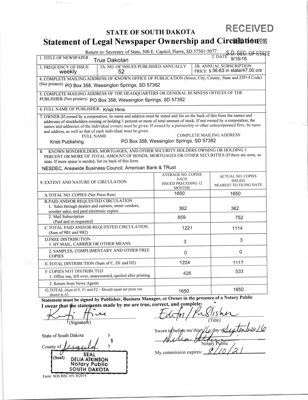 STATE OF SOUTH DAKOTA
RECEIVED
Statement of Legal Newspaper Ownership and Circulation
Return to: Secretary of State, 500 E. Capitol, Pierre, SD 57501-5077
S.D. SEC. OF STATE
1. TITLE OF NEWSPAPER True Dakotan
2. DATE 9/16/16
3. FREQUENCY OF ISSUE weekly
3A. NO. OF ISSUES PUBLISHED ANNUALLY 52
3B. ANNUAL SUBSCRIPTION PRICE $ 36.83 in state/47.00 o/s
4. COMPLETE MAILING ADDRESS OF KNOWN OFFICE OF PUBLICATION (Street, City, County, State and ZIP+4 Code)
(Not printers) PO Box 358, Wessington Springs, SD 57382
5. COMPLETE MAILING ADDRESS OF THE HEADQUARTERS OR GENERAL BUSINESS OFFICES OF THE
PUBLISHER (Not printers) PO Box 358, Wessington Springs, SD 57382
6. FULL NAME OF PUBLISHER: Kristi Hine
7. OWNER (If owned by a corporation, its name and address must be stated and on the back of this form the names and
addresses of stockholders owning or holding 1 percent or more of total amount of stock. If not owned by a corporation, the
names and addresses of the individual owners must be given. If owned by a partnership or other unincorporated firm, its name
and address, as well as that of each individual must be given.
FULL NAME
COMPLETE MAILING ADDRESS
Kristi Publishing
PO Box 358, Wessington Springs, SD 57382
8. KNOWN BONDHOLDERS, MORTGAGES, AND OTHER SECURITY HOLDERS OWNING OR HOLDING 1
PERCENT OR MORE OF TOTAL AMOUNT OF BONDS, MORTGAGES OR OTHER SECURITIES (If there are none, so
state. If more space is needed, list on back of this form.
NESDEC, Areawide Business Council, American Bank & TRust
9. EXTENT AND NATURE OF CIRCULATION
AVERAGE NO. COPIES EACH ISSUED PRECEEDING 12 MONTHS
ACTUAL NO. COPIES ISSUED NEAREST TO FILING DATE
A.TOTAL NO. COPIES (Net Press Run) 1650 1650
B.PAID AND/OR REQUESTED CIRCULATION
1. Sales through dealers and carriers, street vendors,
counter sales, and paid electronic copies. 362 362
2. Mail Subscription
(Paid and or requested) 859 752
C.TOTAL PAID AND/OR REQUESTED CIRCULATION
(Sum of 9B1 and 9B2) 1221 1114
D.FREE DISTRIBUTION
1. BY MAIL, CARRIER OR OTHER MEANS 3 3
2. SAMPLES, COMPLIMENTARY AND OTHER FREE
COPIES 0 0
E. TOTAL DISTRIBUTION (Sum of C, DI and DII) 1224 1117
F. COPIES NOT DISTRIBUTED
1. Office use, left over, unaccounted, spoiled after printing 426 533
2. Return from News Agents
G.TOTAL (Sum of E, F1 and F2 - Should equal net press run
shown in A) 1650 1650
Statement must be signed by Publisher, Business Manager, or Owner in the presence of a Notary Public
I swear that the statements made by me are true, correct, and complete:
Kristi Hine
Editor/Publisher
(Signature)
(Title)
State of South Dakota
County of Jerauld
Sworn to before me this 16 day September 16
Notary Public
My commission expires:
(Seal)
SEAL
DELIA ATKINSON
Notary Public
SOUTH DAKOTA
Form: SOS REC 051 8/2014